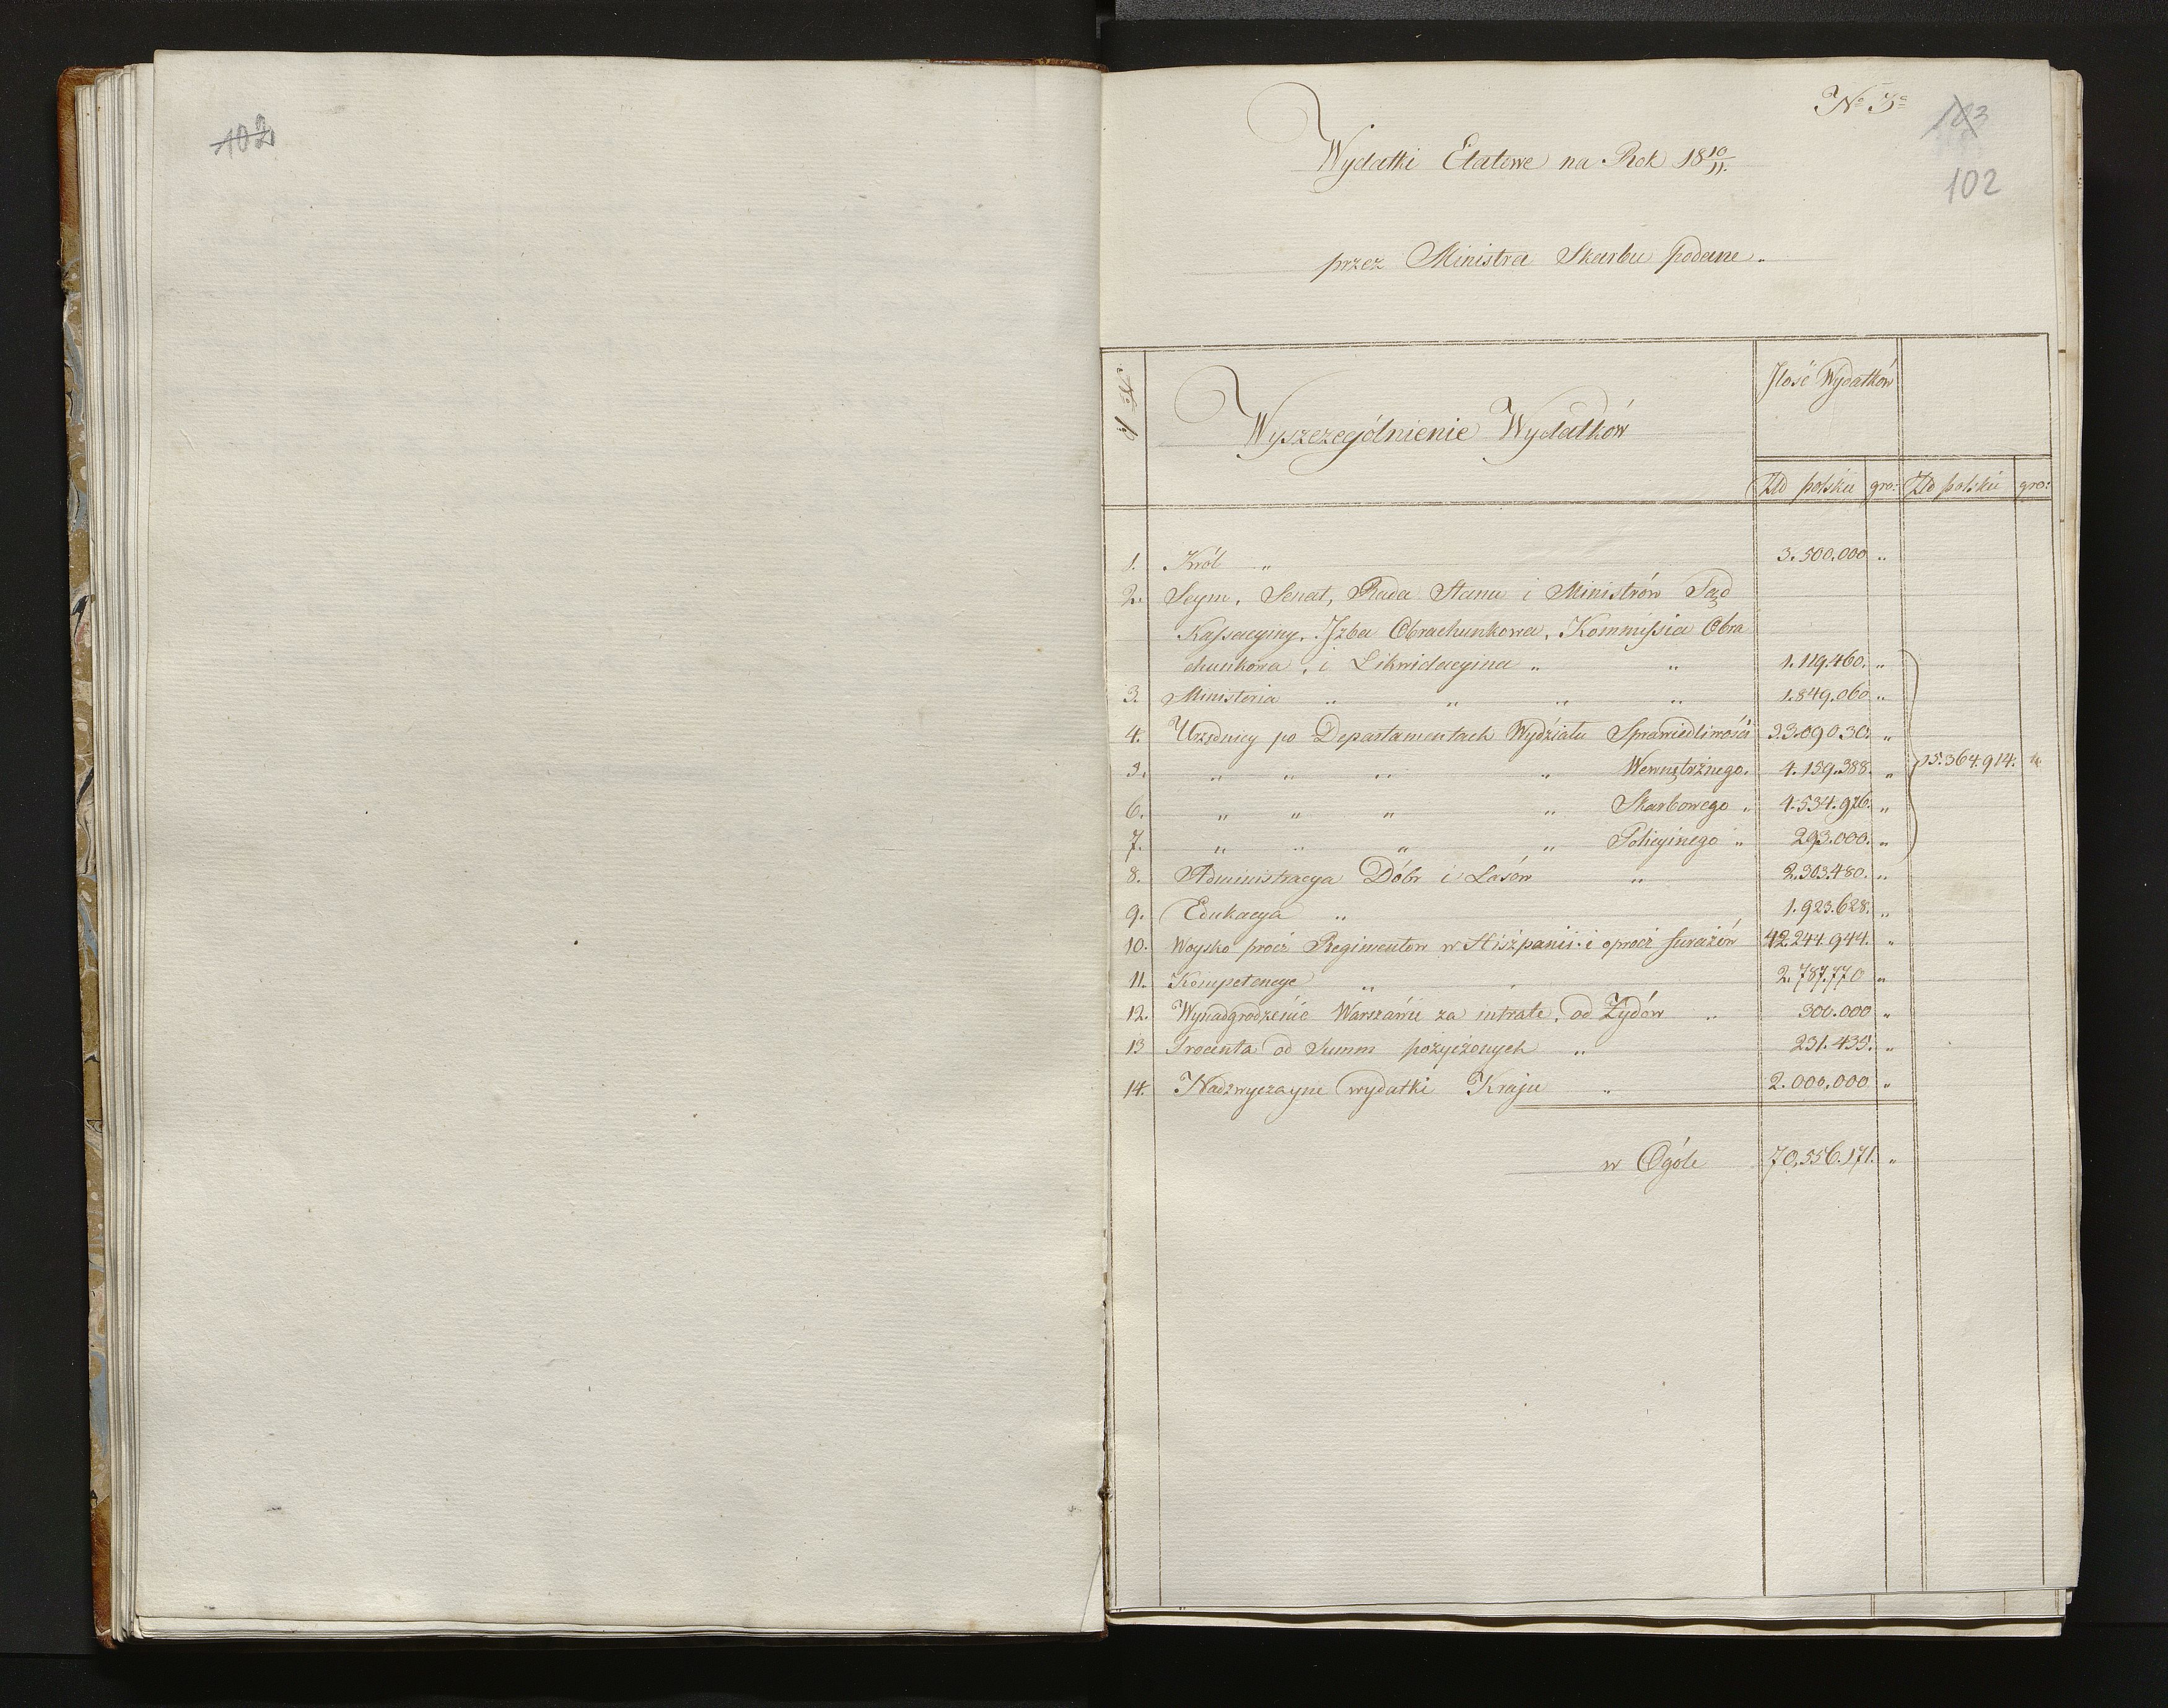 102
No 5a
183
102
Wydatki Etatowe na Rok 18 10/11.
przez Ministra Skarbu podane.
No
Wyszczególnienie Wydatków
Jlość Wydatków
Złd polskie gro: Złd polskie gro:
1. Król " 3.500.000 "
2. Seym, Senat, Rada Stanu i Ministrów Sąd
Kassacyiny, Jzba Obrachunkowa, Kommissia Obra
chunkowa, i Likwidacyina " " 1.119.460. "
3. Ministeria " " " " 1.849.060 "
4. Urzędnicy po Departamentach Wydziału Sprawiedliwości 3.309.030. "
5. " " " " Wewnętrznego. 4.159.388. " 15.264.914. "
6. " " " " Skarbowego " 4.534.976. "
7. " " " " Policyinego " 293.000. "
8. Administracya Dóbr i Lasów " 2.303.480. "
9. Edukacya " 1.923.628. "
10. Woysko procz Regimentow w Hiszpanii i oprocz furażów 42.244.944. "
11. Kompetencye " " 2.787.770 "
12. Wynadgrodzenie Warszawie za intratę, od Żydów " 300.000 "
13 Procenta od Summ pożyczonych " 231.435. "
14. Nadzwyczayne wydatki Kraju " 2.000.000 "
w Ogóle 70,556.171. "